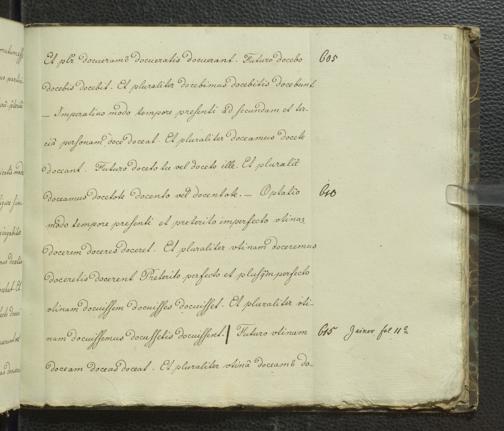 Et plr docueram9 docueratis docuerant. Futuro docebo 605
docebis docebit. Et pluraliter docebimus docebitis docebunt
– Imperatiuo modo tempore presenti ad secundam et ter-
ciã personam doce doceat. Et pluraliter doceamus docete
doceant. Futuro doceto tu vel doceto ille. Et pluralit̃
doceamus docetote docento vel docentote. — Optatio 610
modo tempore presenti et preterito imperfecto vtinaz
docerem doceres doceret. Et pluraliter vtinam doceremus
doceretis docerent Preterito perfecto et plusq̃mperfecto
vtinam docuissem docuisses docuisset. Et pluraliter vti-
nam docuissemus docuissetis docuissent. | Futuro vtinam 615 fol 11
doceam doceas doceat. Et pluraliter vtinã doceam9 do-